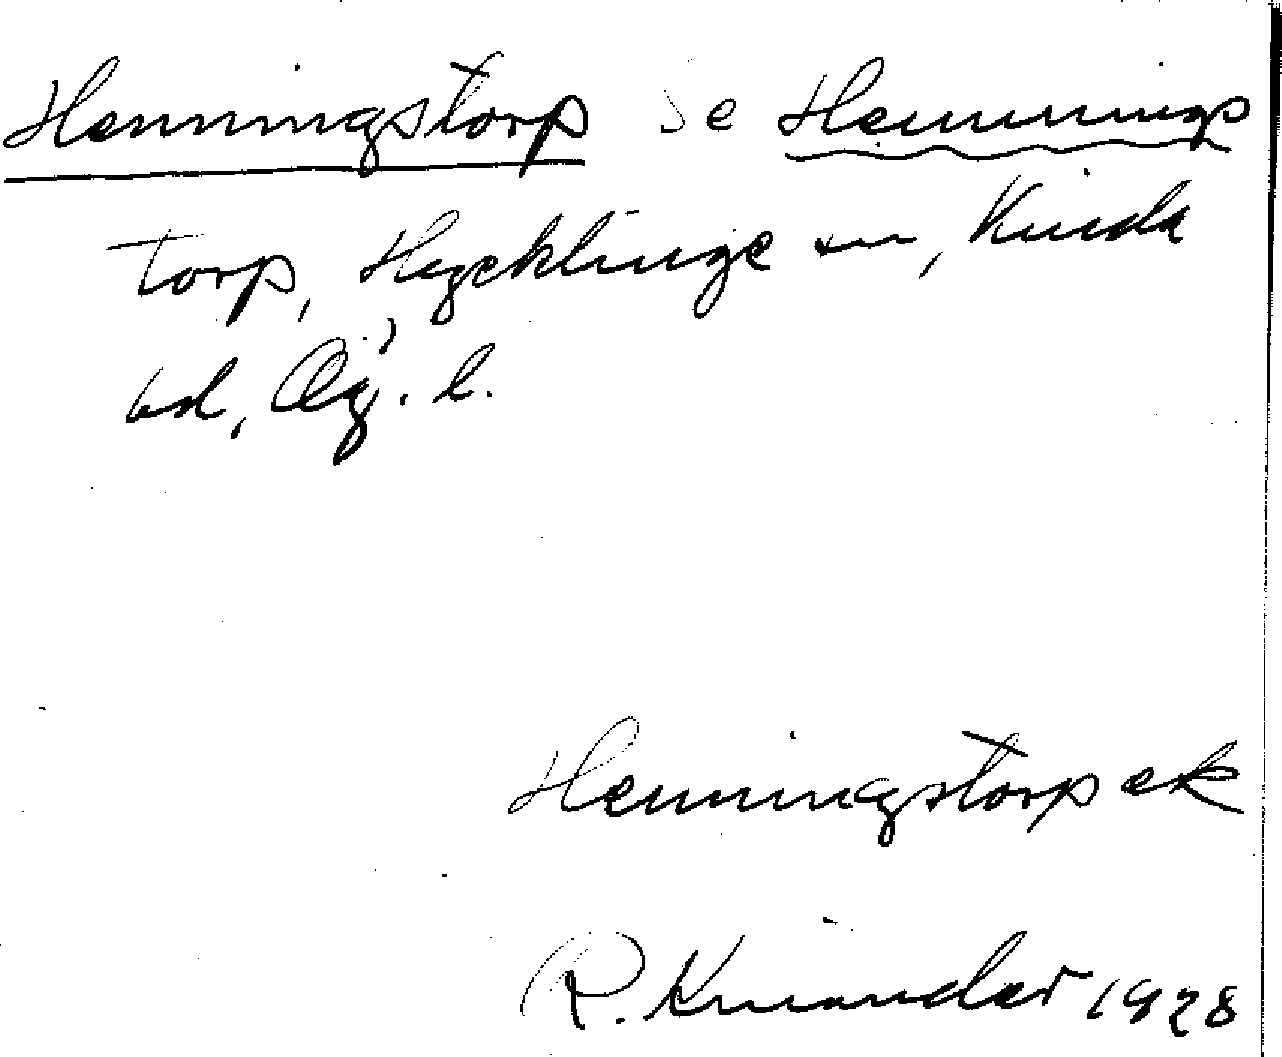 Henningstorp se Hemmings
torp, Hycklinge sn, Kinda
hd, Ög. l.
Henningstorp ek
R. Kinander 1928